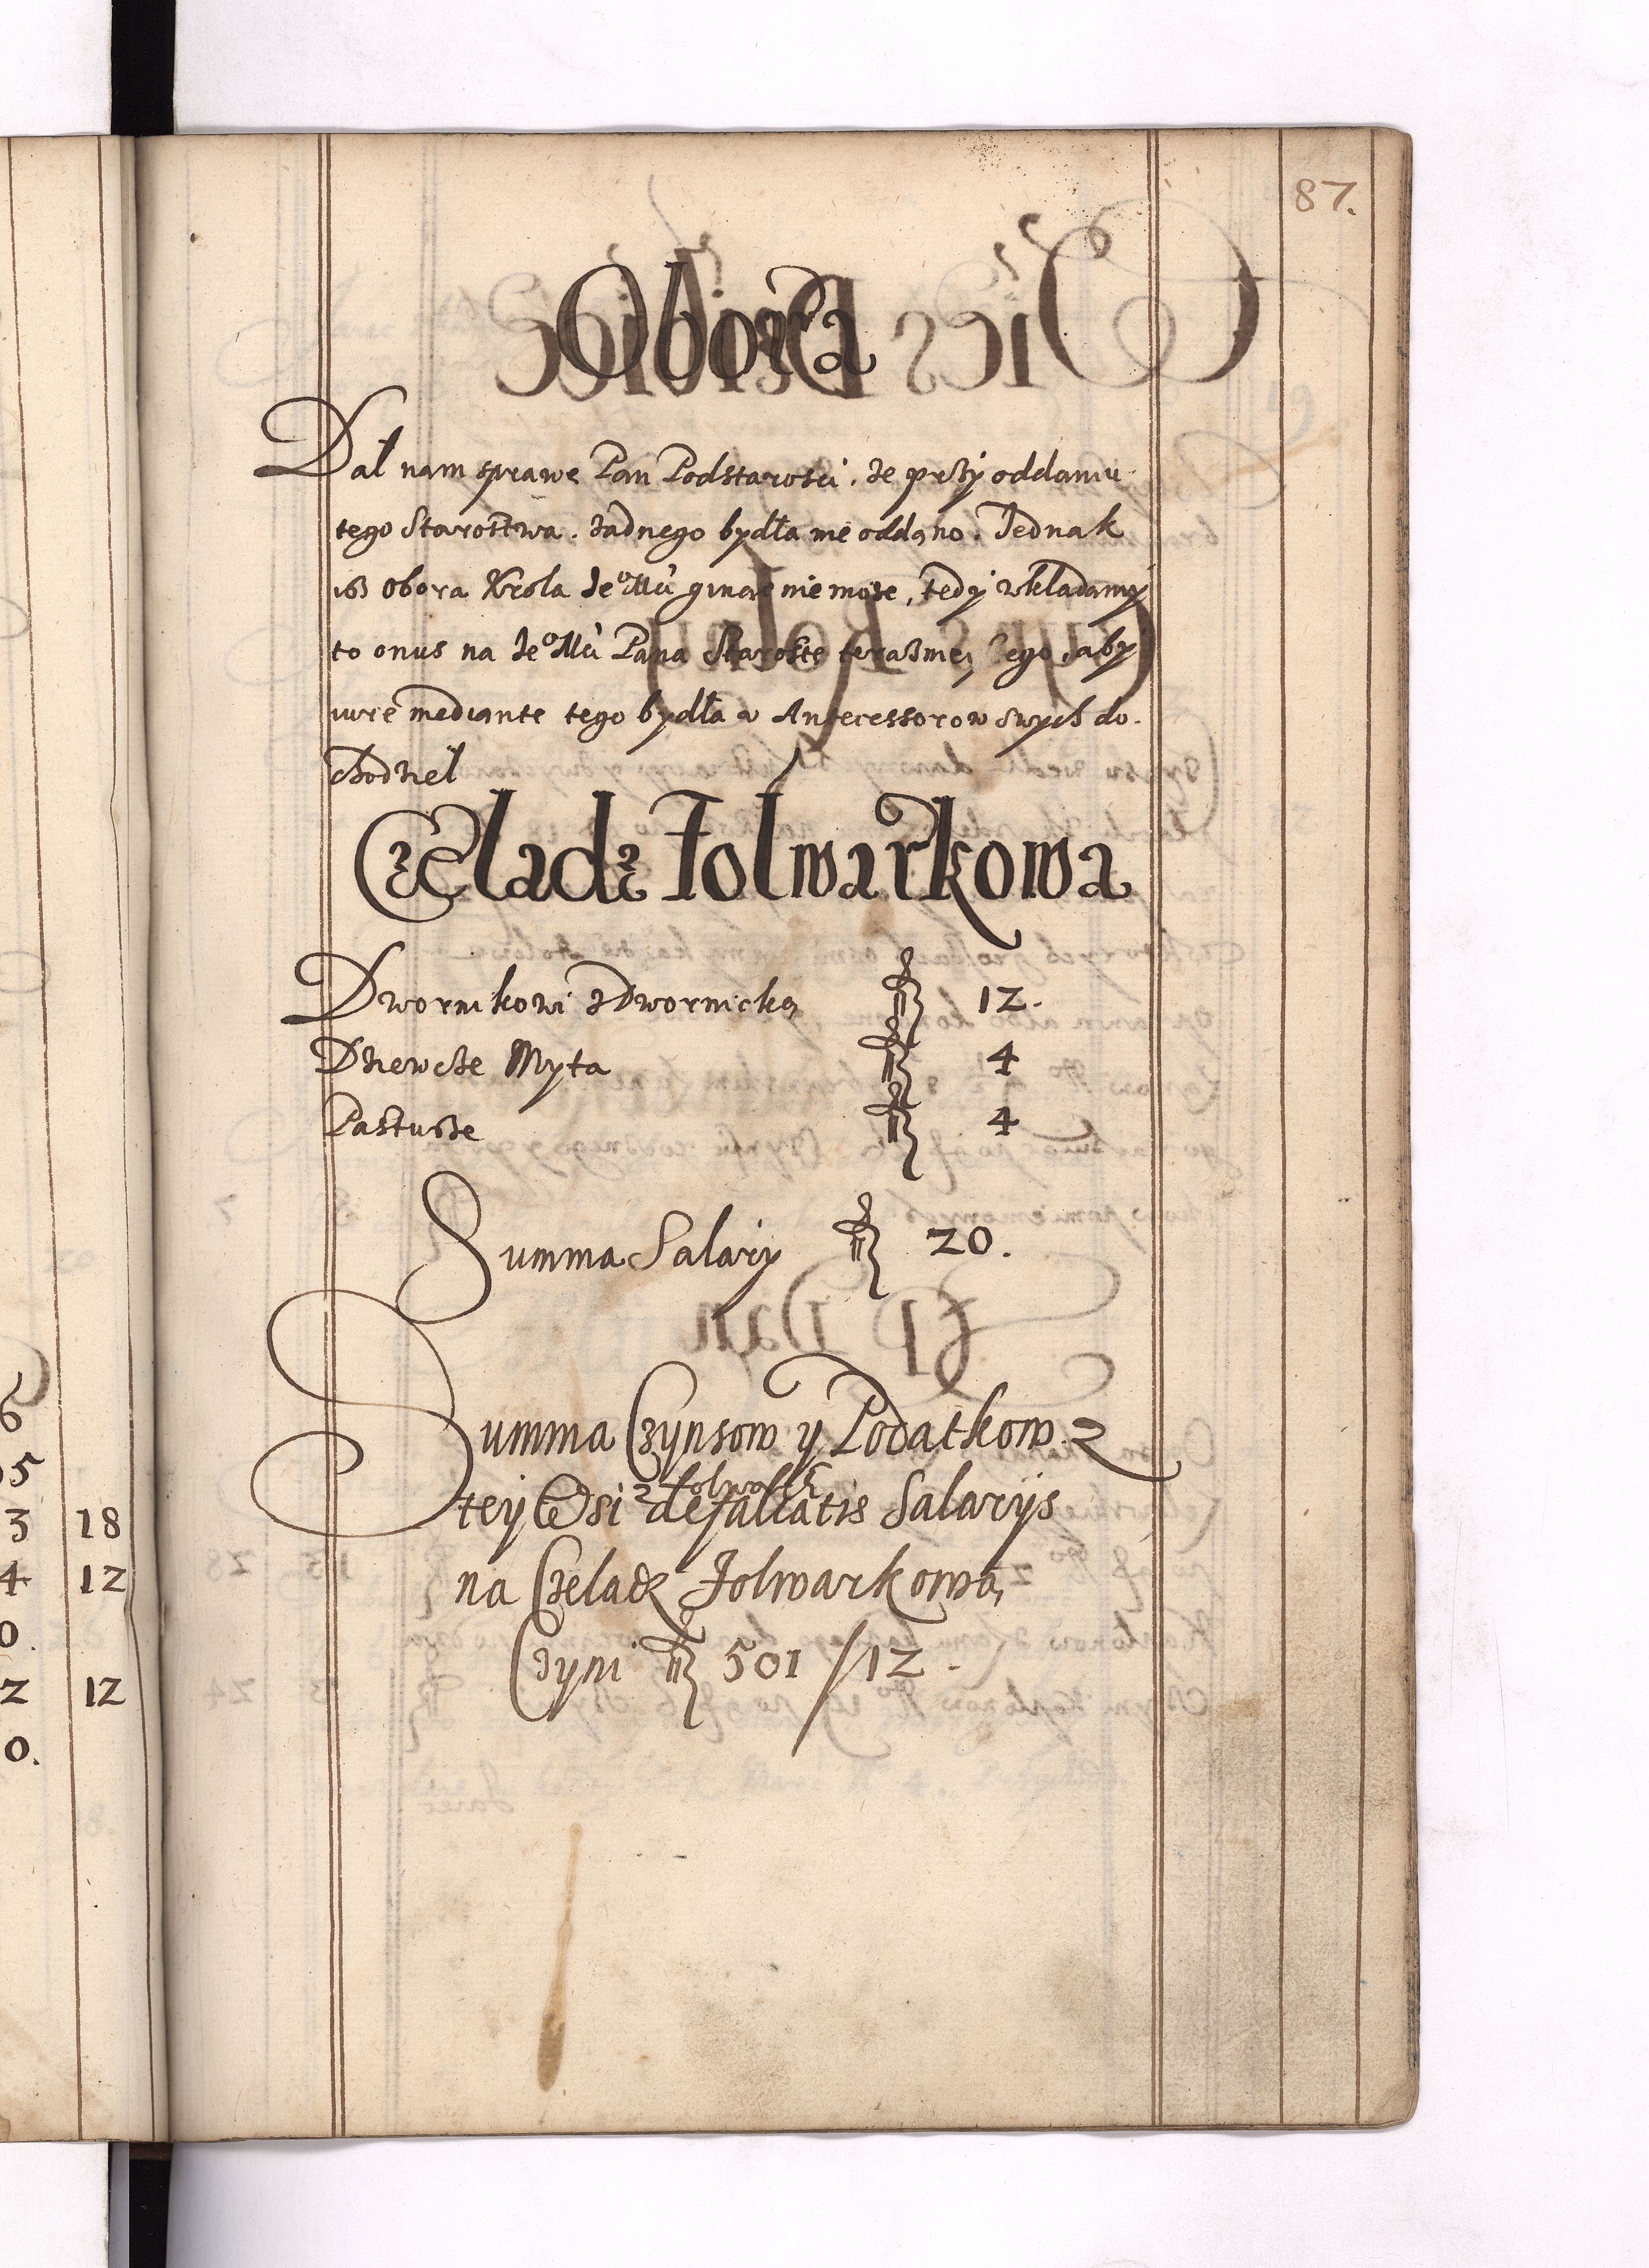 87.
Obora
Dał nam sprawe Pan Podstarości, że przy oddaniu
tego Starostwa, żadnego bydła nie oddano. Jednak
iż Obora Krola Je⁰Mći ginąć nie może, tedy wkładamy
to onus na Je⁰Mći Pana Staroste teraznieyszego, aby
iure mediante tego bydła u Antecessorow swych do-
chodzieł
Czeladz Folwarkowa
Dwornikowi z Dworniczką 12.
Dziewcze Myta 4
Pastusze 4
Summa Salary 20.
Summa Czynsow y Podatkow z
tey Wsi z folwarku defalcatis Salarijs
na Czeladz Folwarkową
Czyni 501/12.
6
5
3 18
4 12
0.
2 12
0.